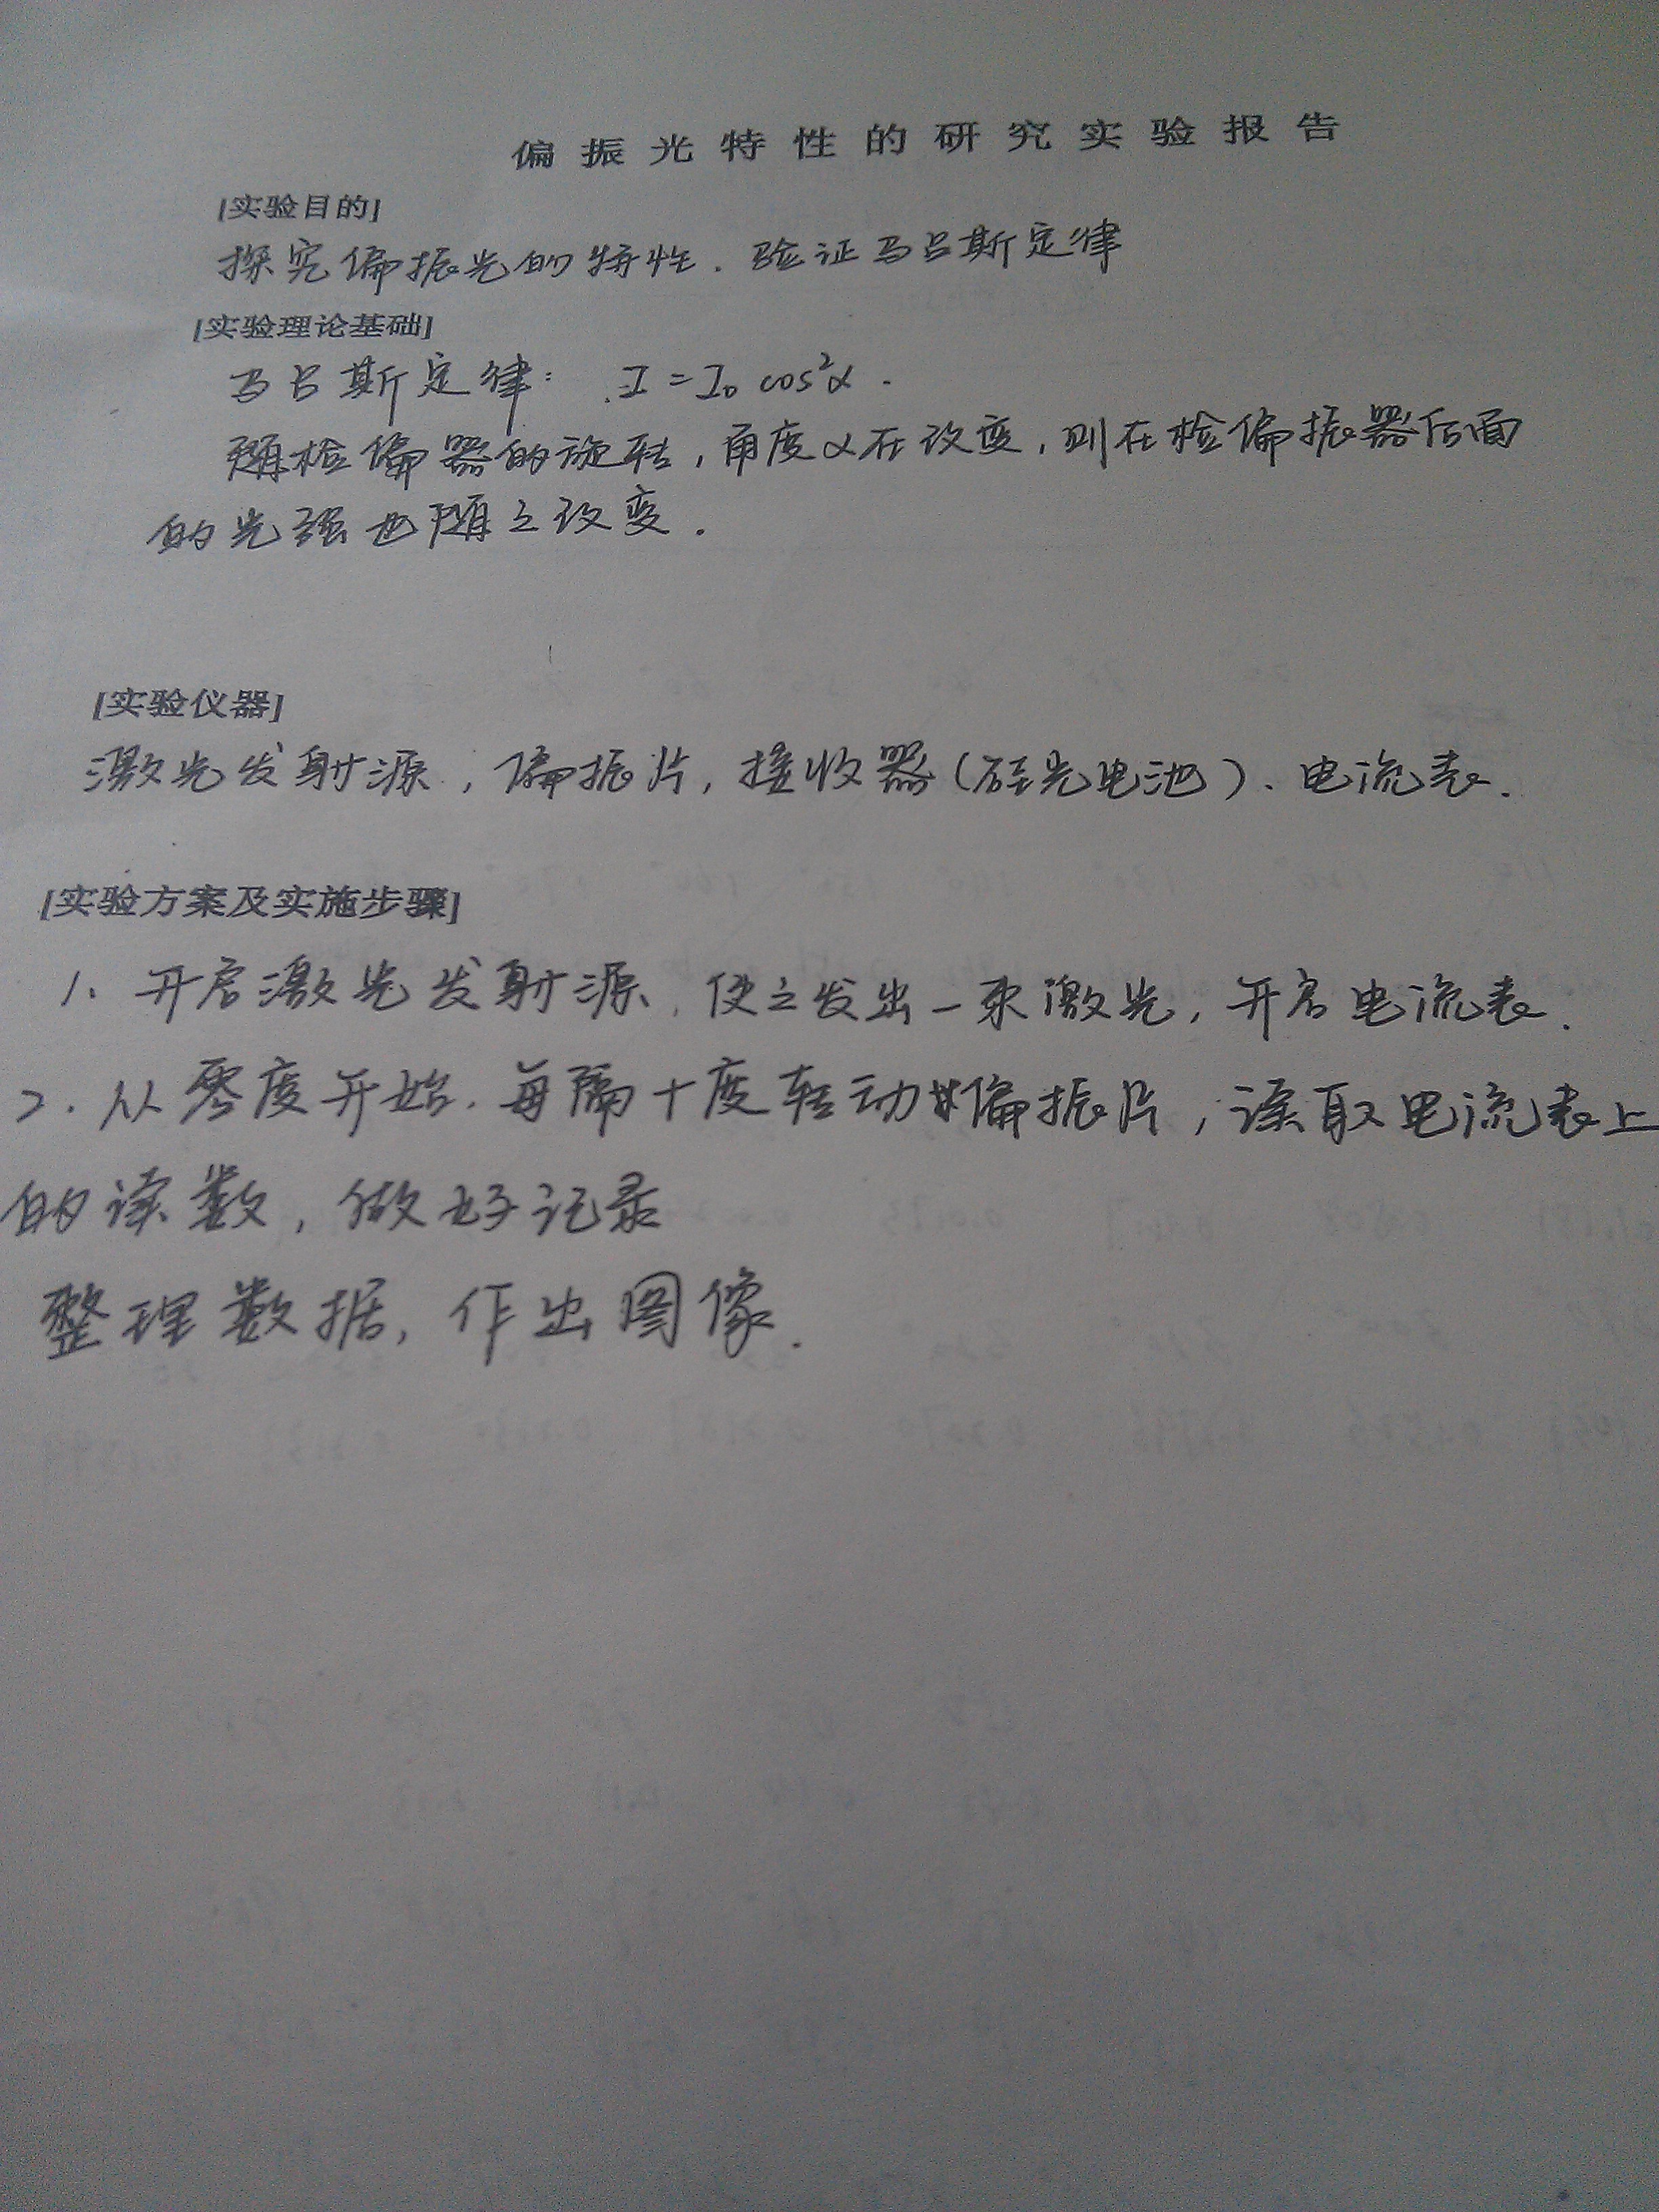 偏振光特性的研究实验报告
[实验目的]
探究偏振光的特性.验证马吕斯定律
[实验理论基础]
马吕斯定律: I=I₀cos²α.
随检偏器的旋转,角度α在改变,则在检偏振器后面
的光强也随之改变.
[实验仪器]
激光发射源,偏振片,接收器(硅光电池)、电流表.
[实验方案及实施步骤]
1、开启激光发射源,使之发出一束激光,开启电流表.
2.从零度开始.每隔十度转动偏振片,读取电流表上
的读数,做好记录
整理数据,作出图像.